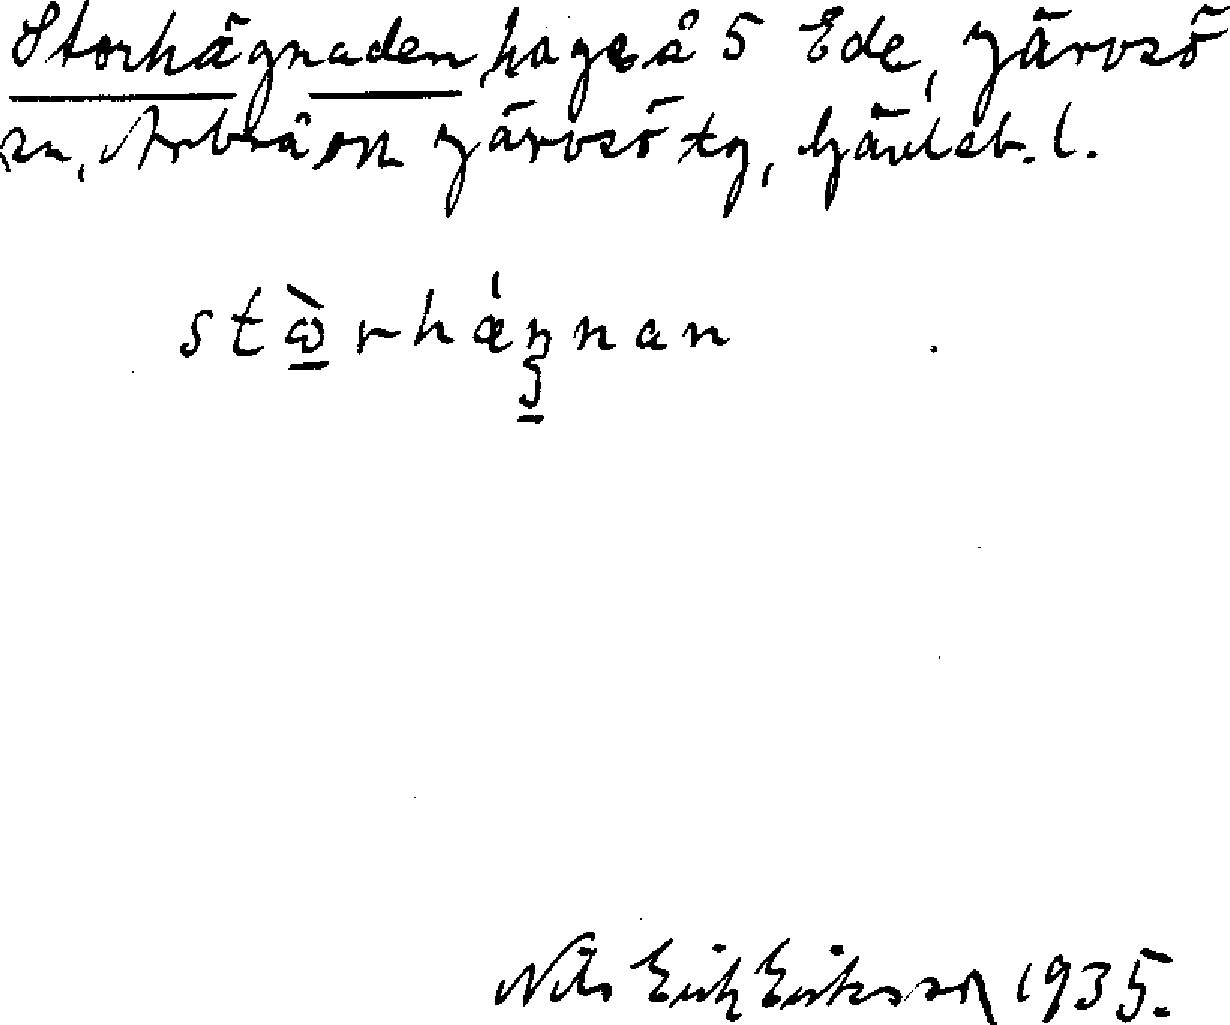 Storhägnaden hage å 5 Ede, Järvsö
sn, Arbrå o Järvsö tg, Gävleb. l.
stὼ̠rhǽŋnan
Nils Erik Eriksson 1935.